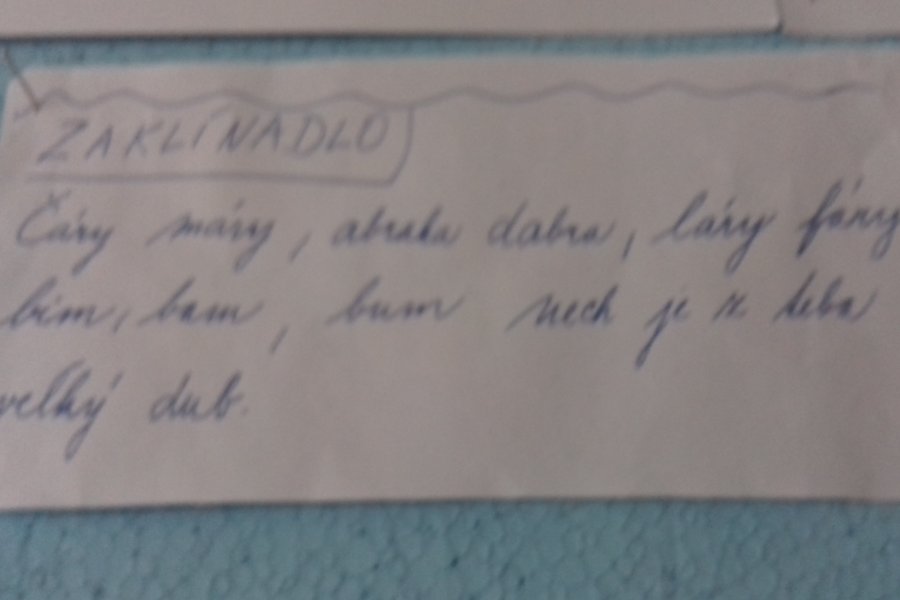 ZAKLÍNADLO
Čáry máry, abraka dabra, láry fáry
bim, bam, bum nech je z teba
veľký dub.